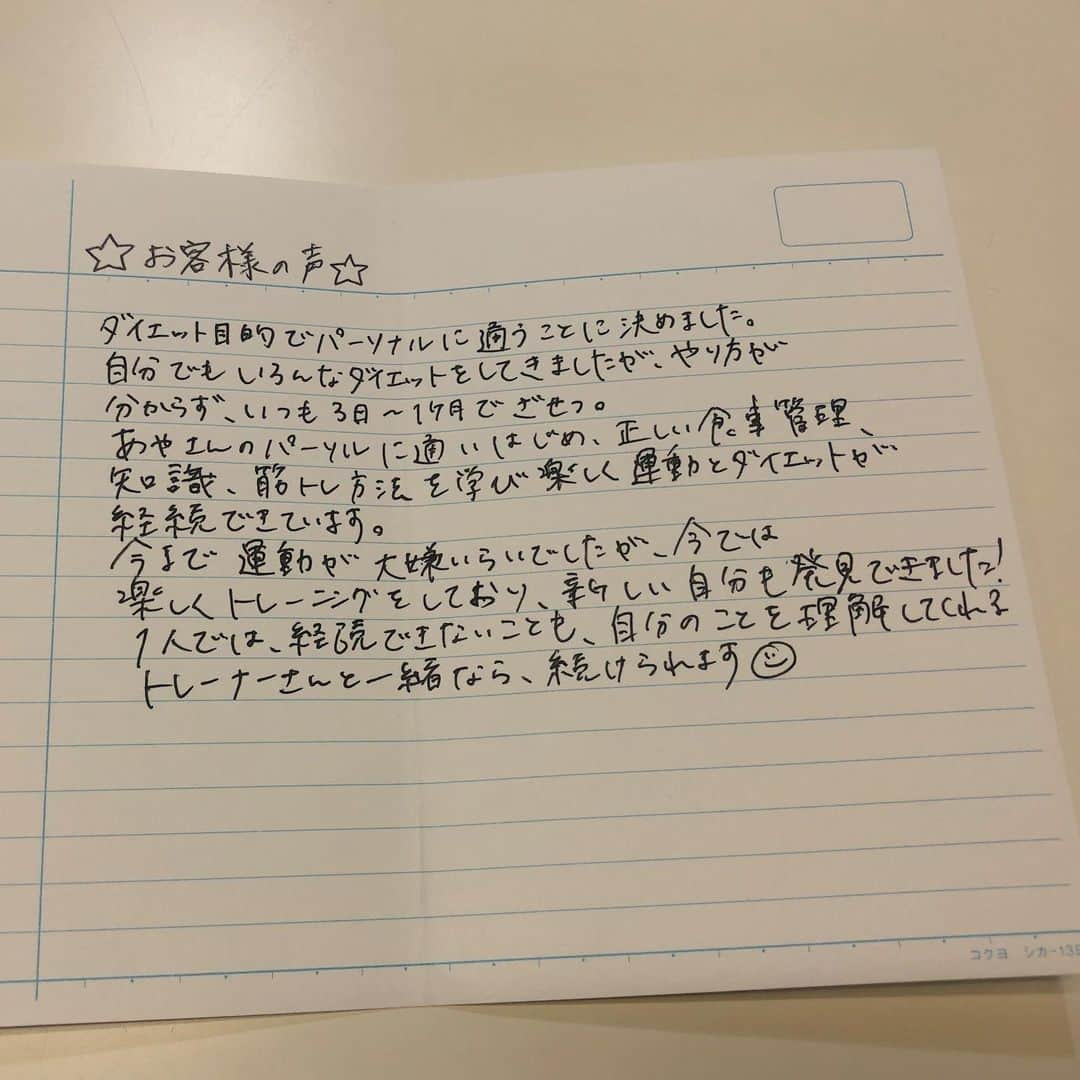 ☆お客様の声☆
ダイエット目的でパーソナルに通うことに決めました。
自分でもいろんなダイエットをしてきましたが、やり方が
分からず、いつも3日〜1ヶ月でざせつ。
あやさんのパーソルに通いはじめ、正しい食事管理、
知識、筋トレ方法を学び楽しく運動とダイエットが
経続できています。
今まで運動が大嫌いらいでしたが、今では
楽しくトレーニングをしており、新しい自分も発見できました!
1人では、経続できないことも、自分のことを理解してくれる
トレーナーさんと一緒なら、続けられます☺
コクヨ シカ-135